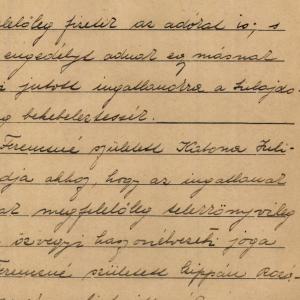 elelőleg fizetik az adókat is; s
engedélyt adnak egymásnak
jutott ingatlanokra a tulajdo-
g bekebelezését.
Ferencné született Katona Juli-
dja ahhoz, hogy az ingatlanok
at megfelelőleg telekkönyvileg
özvegyi haszonélvezeti joga
Ferencné született Cippán Rozá-